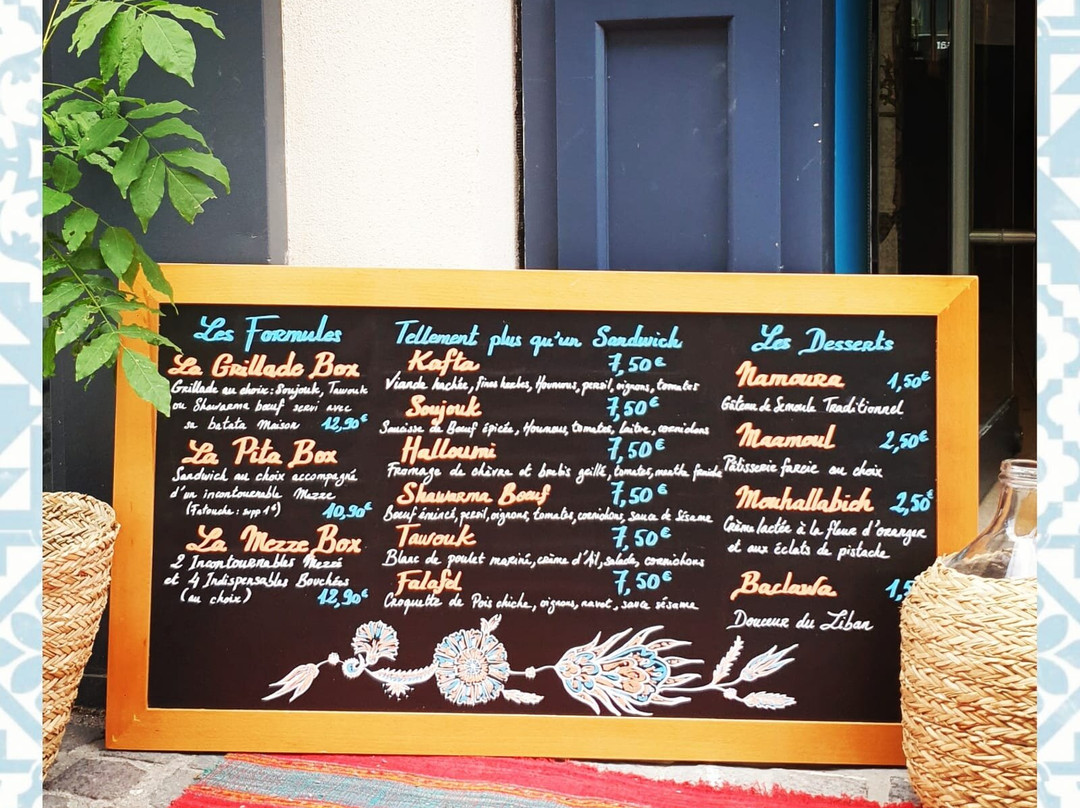 Les Formules
La Grillade Box
Grillade au choix : Soujouk, Tawouk
ou Shawarma bœuf servi avec
sa batata Maison 12,90€
La Pita Box
Sandwich au choix accompagné
d'un incontournable Mezze
(Fatouche : supp 1€) 10,90€
La Mezze Box
2 Incontournables Mezzé
et 4 Indispensables Bouchées
(au choix) 12,90€
Tellement plus qu'un Sandwich
Kafta 7,50€
Viande hachée, fines herbes, Houmous, persil, oignons, tomates
Soujouk 7,50€
Saucisse de Bœuf épicée, Houmous, tomates, laitue, cornichons
Halloumi 7,50€
Fromage de chèvre et brebis grillé, tomates, menthe fraîche
Shawarma Bœuf 7,50€
Bœuf émincé, persil, oignons, tomates, cornichons, sauce de Sésame
Tawouk 7,50€
Blanc de poulet mariné, crème d'Ail, salade, cornichons
Falafel 7,50€
Croquette de Pois chiche, oignons, navet, sauce sésame
Les Desserts
Namoura 1,50€
Gâteau de Semoule Traditionnel
Maamoul 2,50€
Pâtisserie farcie au choix
Mouhallabieh 2,50€
Crème lactée à la fleur d'oranger
et aux éclats de pistache
Baclawa 1,5
Douceur du Liban